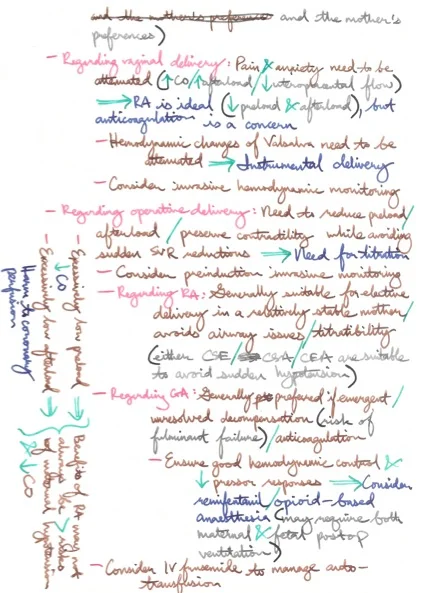 and the mother's preference and the mother's
preferences)
– Regarding vaginal delivery: Pain & anxiety need to be
attenuated (↑CO/↑afterload/↓uteroplacental flow)
→ RA is ideal (↓preload & afterload), but
anticoagulation is a concern
– Hemodynamic changes of Valsalva need to be
attenuated → Instrumental delivery
– Consider invasive hemodynamic monitoring
– Regarding operative delivery: Need to reduce preload/
afterload/preserve contractility while avoiding
sudden SVR reductions → Need for titration
– Consider preinduction invasive monitoring
– Regarding RA: Generally suitable for elective
delivery in a relatively stable mother/
avoids airway issues/titratibility
(either CSE/CSA/CEA are suitable
to avoid sudden hypotension)
– Regarding GA: Generally preferred if emergent/
unresolved decompensation (risk of
fulminant failure)/anticoagulation
– Ensure good hemodynamic control &
↓pressor responses → Consider
remifentanil/opioid-based
anaesthesia (may require both
maternal & fetal postop
ventilation)
– Consider IV furosemide to manage auto-
transfusion
– Excessively low preload →
↓CO
– Excessively low afterload →
Harm to coronary
perfusion
Benefits of RA may not
always be > risks
of maternal hypotension
& ↓CO